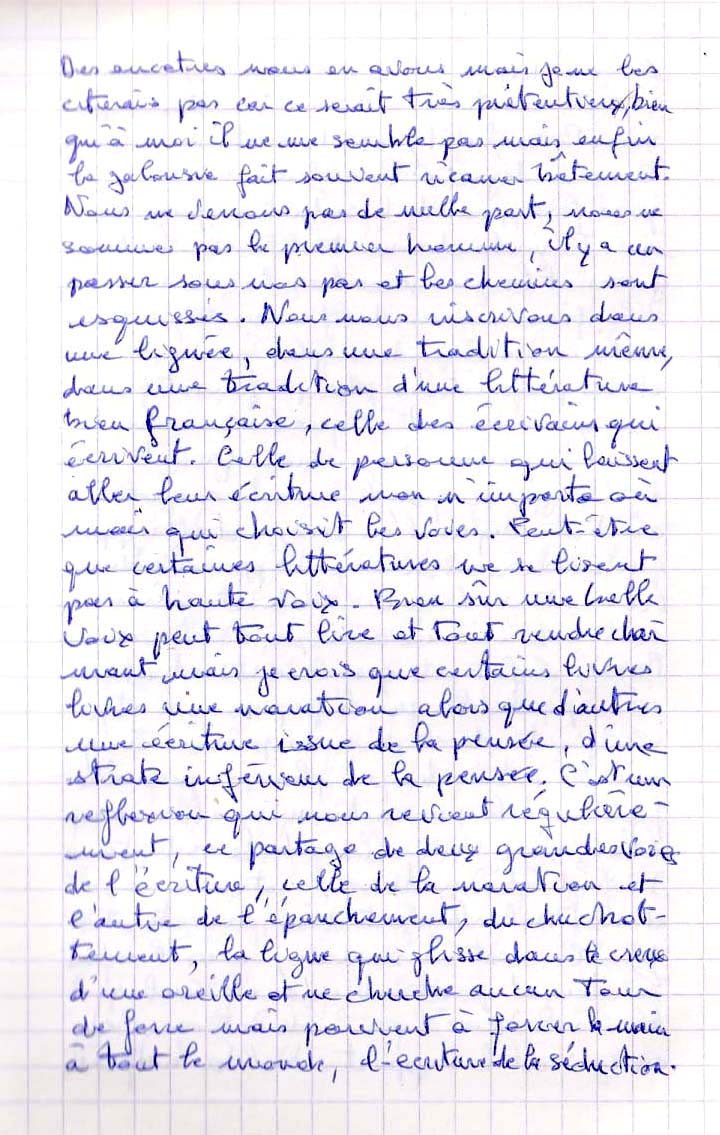 Des ancetres nous en avons mais je ne les
citerais pas car ce serait très prétentieux, bien
qu'à moi il ne me semble pas mais enfin
la jalousie fait souvent ricaner bêtement.
Nous ne venons pas de nulle part, nous ne
sommes pas le premier homme, il y a un
passer sous nos pas et les chemins sont
esquissés. Nous nous inscrivons dans
une lignée, dans une tradition même,
dans une tradition d'une littérature
bien française, celle des écrivains qui
écrivent. Celle de personne qui laissent
aller leur écriture non n'importe où
mais qui choisit les voies. Peut-être
que certaines littératures ne se lisent
pas à haute voix. Bien sûr une belle
voix peut tout lire et tout rendre char
mant, mais je crois que certains livres
livres une naration alors que d'autres
une écriture issue de la pensée, d'une
strate inférieur de la pensée. C'est une
reflexion qui nous revient régulière-
ment, ce partage de deux grandes voies
de l'écriture, celle de la naration et
l'autre de l'épanchement, du chuchot-
tement, la ligne qui glisse dans le creux
d'une oreille et ne cherche aucun tour
de force mais parvient à forcer la main
à tout le monde, l'écriture de la séduction.